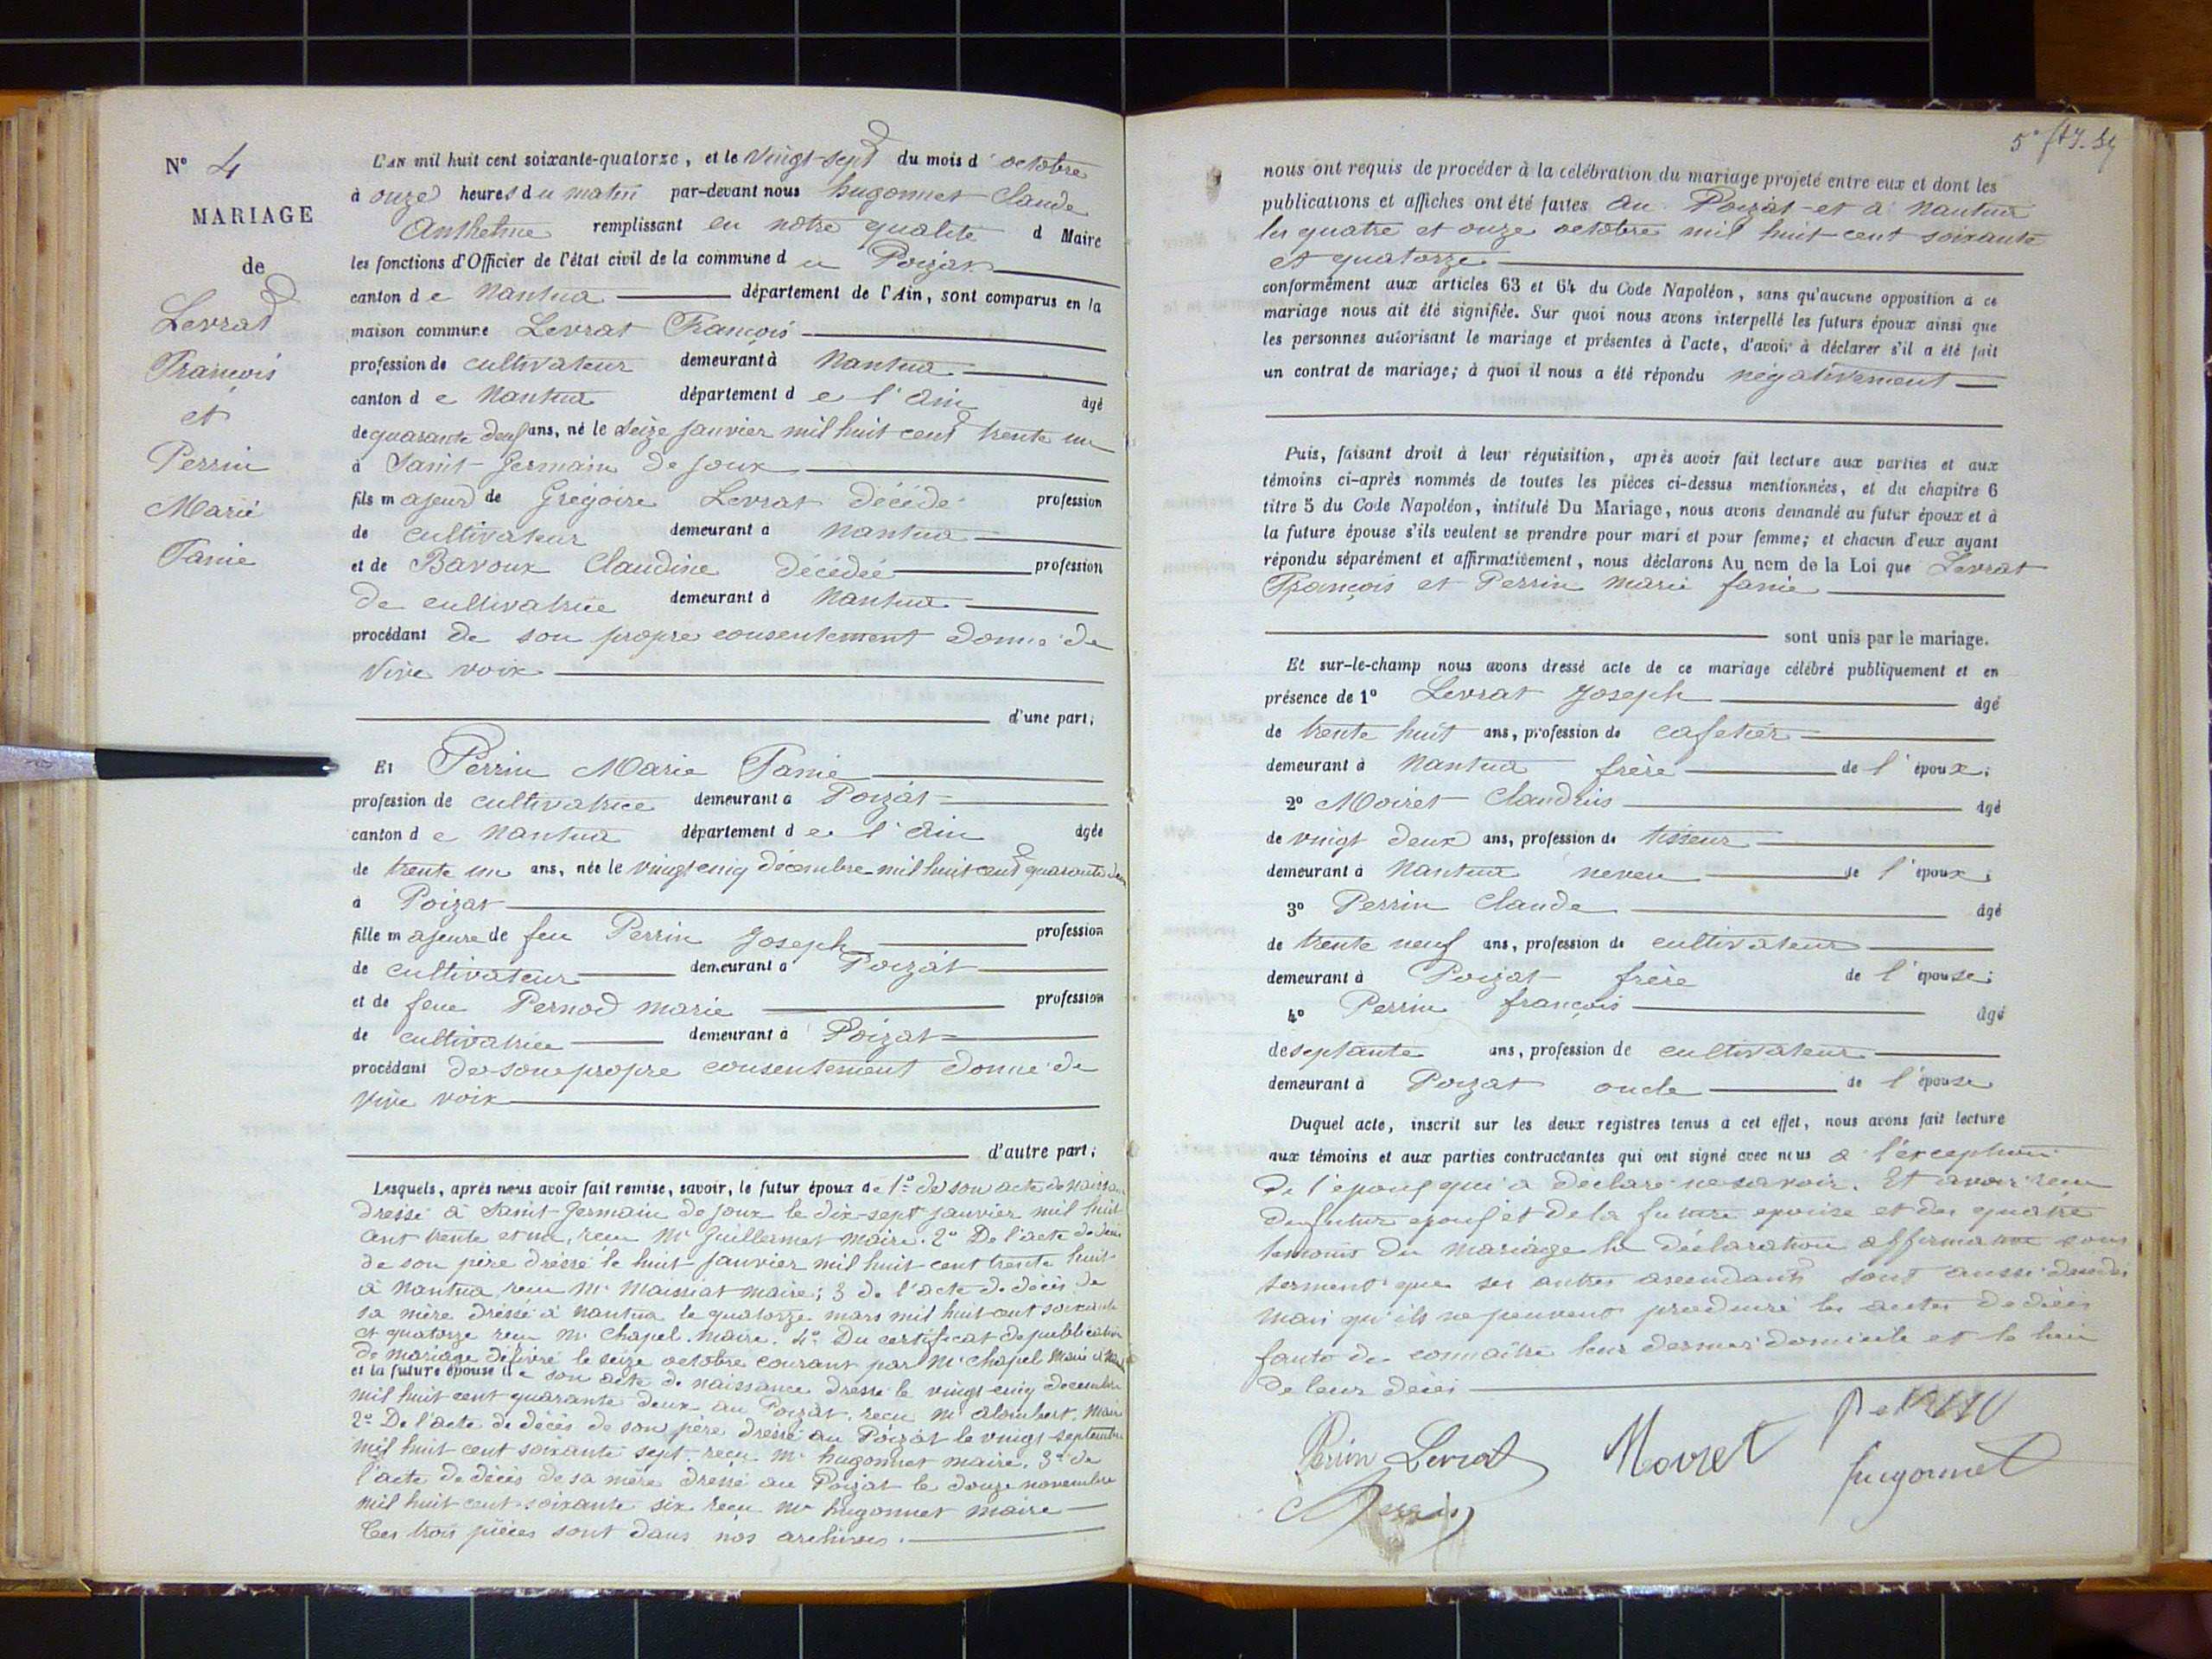 N° 4
MARIAGE
de
Levrat
François
et
Perrin
Marie
Fanie
L'AN mil huit cent soixante-quatorze, et le vingt-sept du mois d'octobre
à onze heures du matin par-devant nous hugonnet Claude
Anthelme remplissant en notre qualité d Maire
les fonctions d'Officier de l'état civil de la commune du Poizat
canton de Nantua département de l'Ain, sont comparus en la
maison commune Levrat François
profession de cultivateur demeurant à Nantua
canton de Nantua département de l'ain âgé
de quarante ans, né le seize janvier mil huit cent trente un
à Saint-Germain de joux
fils majeur de Grégoire Levrat décédé profession
de cultivateur demeurant à Nantua
et de Bavoux Claudine décédée profession
de cultivatrice demeurant à Nantua
procédant de son propre consentement donné de
vive voix
d'une part;
Et Perrin Marie Fanie
profession de cultivatrice demeurant à Poizat
canton de Nantua département de l'ain âgée
de trente un ans, née le vingt cinq décembre mil huit cent quarante deux
à Poizat
fille majeure de feu Perrin Joseph profession
de cultivateur demeurant à Poizat
et de feue Pernod marie profession
de cultivatrice demeurant à Poizat
procédant de son propre consentement donné de
vive voix
d'autre part;
Lesquels, après nous avoir fait remise, savoir, le futur époux de 1° de son acte de naissan
dressé à Saint-Germain de joux le dix-sept janvier mil huit
cent trente et un, reçu Mr Guillermet maire. 2° De l'acte de décès
de son père dressé le huit janvier mil huit cent trente huit
à Nantua reçu Mr Maissiat maire; 3 de l'acte de décès de
sa mère dressé à Nantua le quatorze mars mil huit cent soixante
et quatorze reçu Mr Chapel maire. 4° Du certificat de publication
de mariage délivré le seize octobre courant par Mr Chapel Maire
et la future épouse de son acte de naissance dressé le vingt-cinq décembre
mil huit cent quarante deux au Poizat, reçu Mr Alombert, Maire
2° De l'acte de décès de son père dressé au Poizat le vingt septembre
mil huit cent soixante sept reçu Mr hugonnet maire. 3° de
l'acte de décès de sa mère dressé au Poizat le douze novembre
mil huit cent soixante six reçu Mr hugonnet maire
Ces trois pièces sont dans nos archives.
nous ont requis de procéder à la célébration du mariage projeté entre eux et dont les
publications et affiches ont été faites au Poizat et à Nantua
les quatre et onze octobre mil huit cent soixante
et quatorze
conformément aux articles 63 et 64 du Code Napoléon, sans qu'aucune opposition à ce
mariage nous ait été signifiée. Sur quoi nous avons interpellé les futurs époux ainsi que
les personnes autorisant le mariage et présentes à l'acte, d'avoir à déclarer s'il a été fait
un contrat de mariage; à quoi il nous a été répondu négativement
Puis, faisant droit à leur réquisition, après avoir fait lecture aux parties et aux
témoins ci-après nommés de toutes les pièces ci-dessus mentionnées, et du chapitre 6
titre 5 du Code Napoléon, intitulé Du Mariage, nous avons demandé au futur époux et à
la future épouse s'ils veulent se prendre pour mari et pour femme; et chacun d'eux ayant
répondu séparément et affirmativement, nous déclarons Au nom de la Loi que Levrat
François et Perrin marie fanie
sont unis par le mariage.
Et sur-le-champ nous avons dressé acte de ce mariage célébré publiquement et en
présence de 1° Levrat Joseph âgé
de trente huit ans, profession de cafetier
demeurant à Nantua frère de l'époux;
2° Moiret Claudius âgé
de vingt deux ans, profession de tisseur
demeurant à Nantua neveu de l'époux;
3° Perrin Claude âgé
de trente neuf ans, profession de cultivateur
demeurant à Poizat frère de l'épouse;
4° Perrin françois âgé
de septante ans, profession de cultivateur
demeurant à Poizat oncle de l'épouse
Duquel acte, inscrit sur les deux registres tenus à cet effet, nous avons fait lecture
aux témoins et aux parties contractantes qui ont signé avec nous à l'exception
de l'épouf qui a déclaré ne savoir. Et avoir reçu
du futur épouf et de la future épouse et des quatre
témoins du mariage la déclaration affirmative sous
serment que ses autres ascendants sont aussi décédés
mais qu'ils ne peuvent produire les actes de décès
faute de connaître leur dernier domicile et le lieu
de leur décès
Perrin Levrat Moiret perrin
hugonnet
Perrin